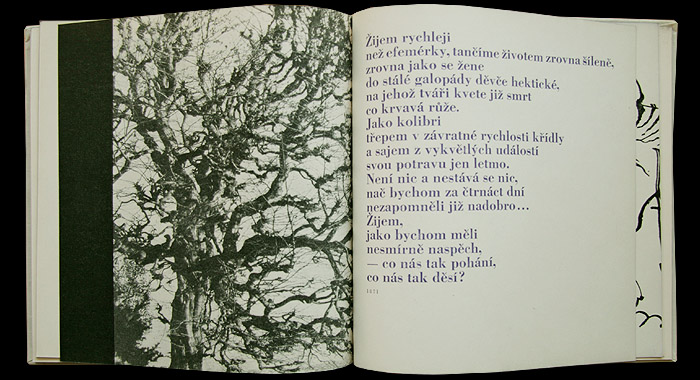 Žijem rychleji
než efemérky, tančíme životem zrovna šíleně,
zrovna jako se žene
do stálé galopády děvče hektické,
na jehož tváři kvete již smrt
co krvavá růže.
Jako kolibri
třepem v závratné rychlosti křídly
a sajem z vykvětlých událostí
svou potravu jen letmo.
Není nic a nestává se nic,
nač bychom za čtrnáct dní
nezapomněli již nadobro...
Žijem,
jako bychom měli
nesmírně naspěch,
— co nás tak pohání,
co nás tak děsí?